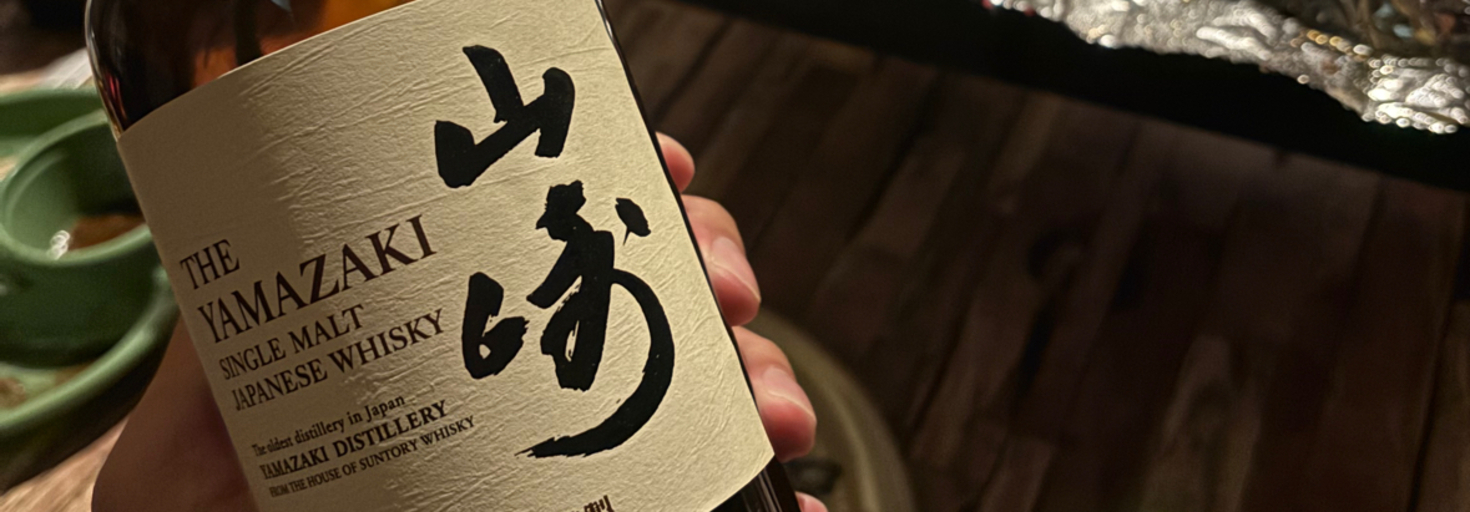 山崎
THE
YAMAZAKI
SINGLE MALT
JAPANESE WHISKY
The oldest distillery in Japan
YAMAZAKI DISTILLERY
FROM THE HOUSE OF SUNTORY WHISKY